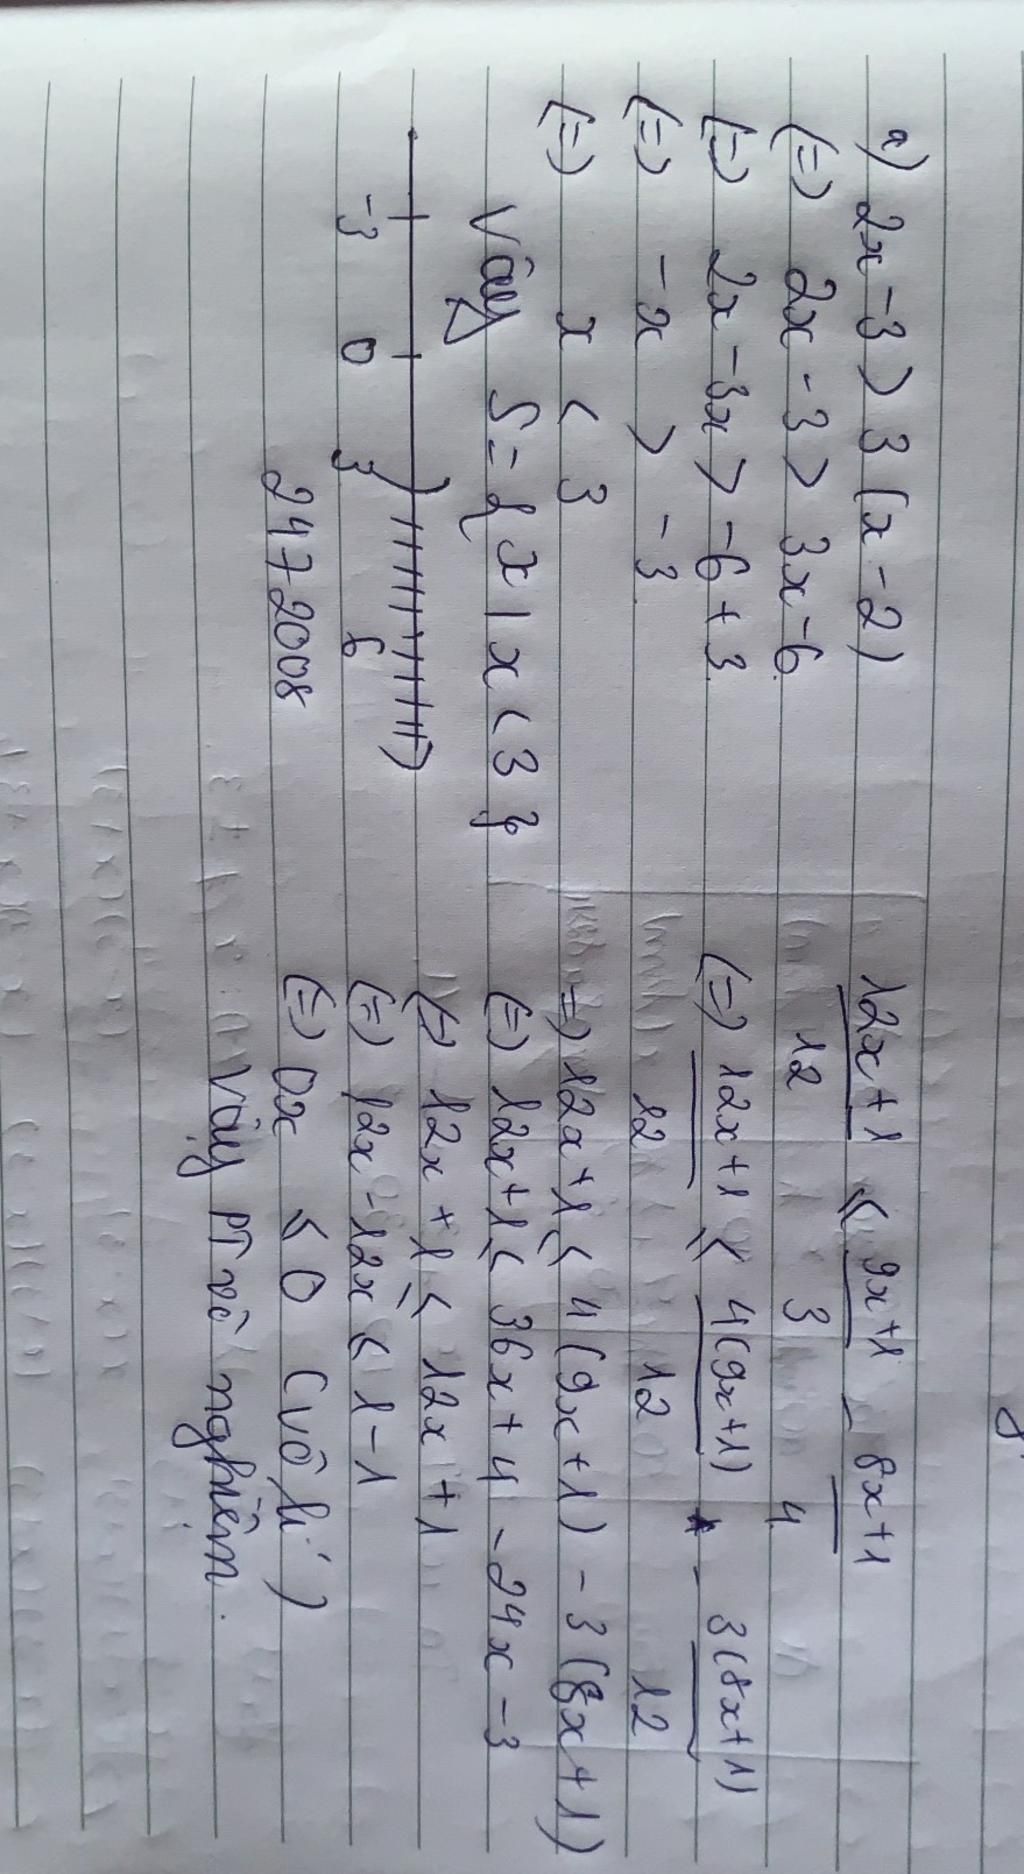 a) 2x - 3 > 3 (x - 2)
(=) 2x - 3 > 3x - 6
(=) 2x - 3x > -6 + 3
(=) -x > -3
(=) x < 3
Vậy S = { x | x < 3 }
-3 0 3 6
2472008
12x+1 ≤ 9x+1 - 8x+1
12 3 4
(=) 12x+1 ≤ 4(9x+1) - 3(8x+1)
12 12 12
=) 12x+1 ≤ 4(9x+1) - 3(8x+1)
(=) 12x+1 ≤ 36x+4 - 24x - 3
(=) 12x + 1 ≤ 12x + 1
(=) 12x - 12x ≤ 1 - 1
(=) 0x ≤ 0 (vô lí)
Vậy PT vô nghiệm.